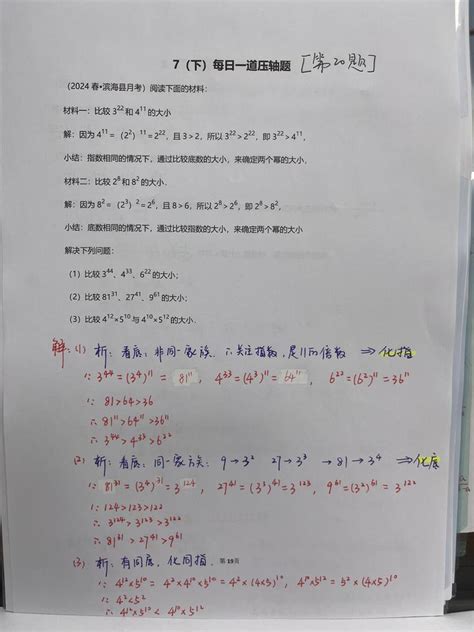 7（下）每日一道压轴题 [第20题]
（2024春•滨海县月考）阅读下面的材料：
材料一：比较3²²和4¹¹的大小
解：因为4¹¹=（2²）¹¹=2²²，且3＞2，所以3²²＞2²²，即3²²＞4¹¹，
小结：指数相同的情况下，通过比较底数的大小，来确定两个幂的大小，
材料二：比较2⁸和8²的大小.
解：因为8²=（2³）²=2⁶，且8＞6，所以2⁸＞2⁶，即2⁸＞8²，
小结：底数相同的情况下，通过比较指数的大小，来确定两个幂的大小
解决下列问题：
（1）比较3⁴⁴、4³³、6²²的大小；
（2）比较81³¹、27⁴¹、9⁶¹的大小；
（3）比较4¹²×5¹⁰与4¹⁰×5¹²的大小.
解：(1) 析：看底：非同一家族. ∴关注指数，是11的倍数 ⇒ 化指
∵ 3⁴⁴=(3⁴)¹¹= 81¹¹ ， 4³³=(4³)¹¹= 64¹¹ ， 6²²=(6²)¹¹=36¹¹
∵ 81>64>36
∴ 81¹¹>64¹¹>36¹¹
∴ 3⁴⁴>4³³>6²²
(2) 析：看底：同一家族： 9→3² 27→3³ →81→3⁴ ⇒化底
∵ 81³¹=(3⁴)³¹=3¹²⁴， 27⁴¹=(3³)⁴¹=3¹²³， 9⁶¹=(3²)⁶¹=3¹²²
∵ 124>123>122
∴ 3¹²⁴>3¹²³>3¹²²
∴ 81³¹>27⁴¹>9⁶¹
(3) 析：有同底，化同指. 第19页
∵ 4¹²×5¹⁰=4²×4¹⁰×5¹⁰=4²×(4×5)¹⁰， 4¹⁰×5¹²=5²×(4×5)¹⁰
∵ 4²<5²
∴ 4¹²×5¹⁰<4¹⁰×5¹²